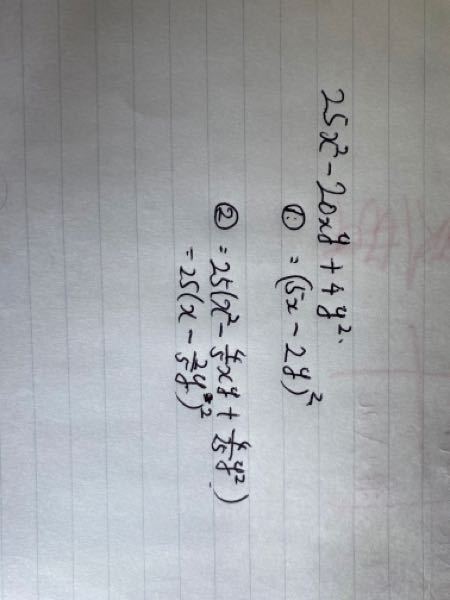 25x² - 20xy + 4y²
① = (5x - 2y)²
② = 25(x² - 4/5xy + 4/25y²)
= 25(x - 2/5y)²